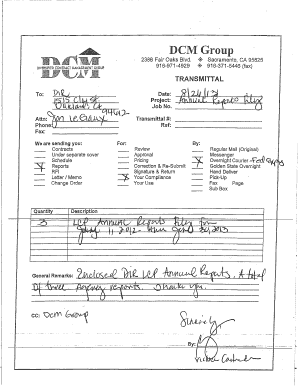 DCM Group
DCM
2386 Fair Oaks Blvd. • Sacramento, CA 95825
916-971-4929 • 916-371-5446 (fax)
TRANSMITTAL
To: DIR
1515 Clay St
Oakland CA 94612
Date: 8/26/13
Project: Annual Reports Filing
Job No.
Attn: Jon
Phone:
Fax:
Transmittal #:
Ref:
We are sending you:
Contracts
Under separate cover
Schedule
X Reports
RFI
Letter / Memo
Change Order
For:
Review
Approval
Pricing
Correction & Re-Submit
Signature & Return
X Your Compliance
Your Use
By:
Regular Mail (Original)
Messenger
X Overnight Courier - Fed Ex
Golden State Overnight
Hand Deliver
Pick-Up
Fax Page
Sub Box
Quantity Description
3 LCP Annual Reports Filing from
July 1, 2012 - thru June 30, 2013
General Remarks: Enclosed DIR LCP Annual Reports. A total
of three Agency reports. Thank you.
CC: DCM Group
Sincerely,
By: